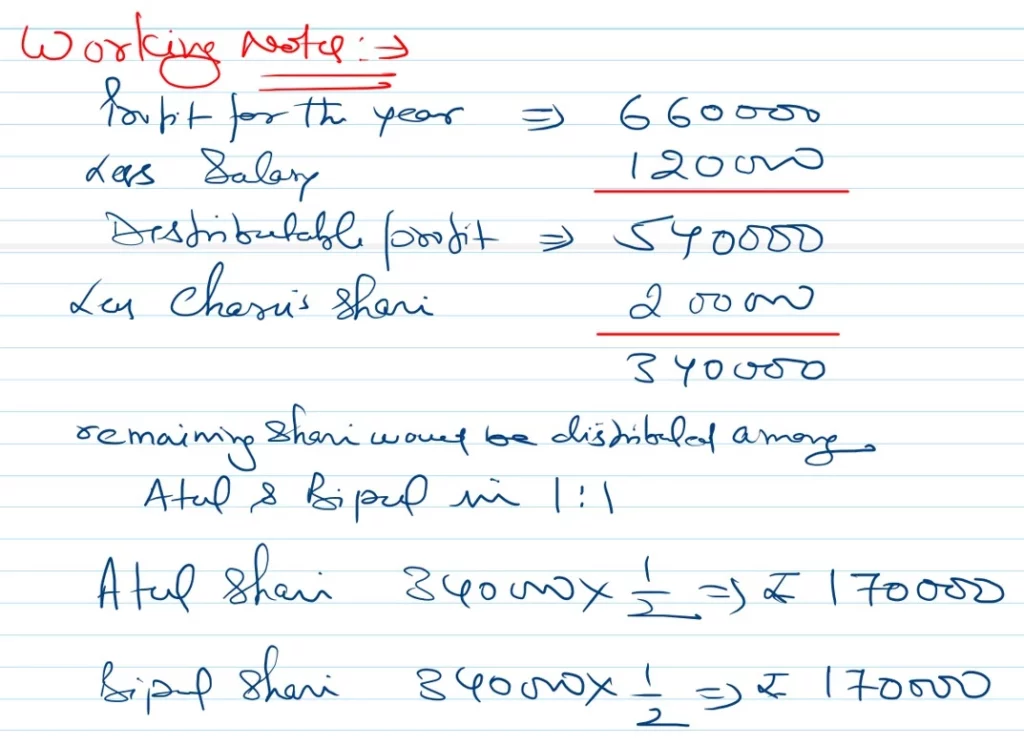 Working Notes :⇒
Profit for the year ⇒ 660000
Less Salary 120000
Distributable profit ⇒ 540000
Less Charu's Share 200000
340000
remaining Share would be distributed among
Atul & Bipul in 1:1
Atul Share 340000 × 1/2 ⇒ ₹ 170000
Bipul Share 340000 × 1/2 ⇒ ₹ 170000